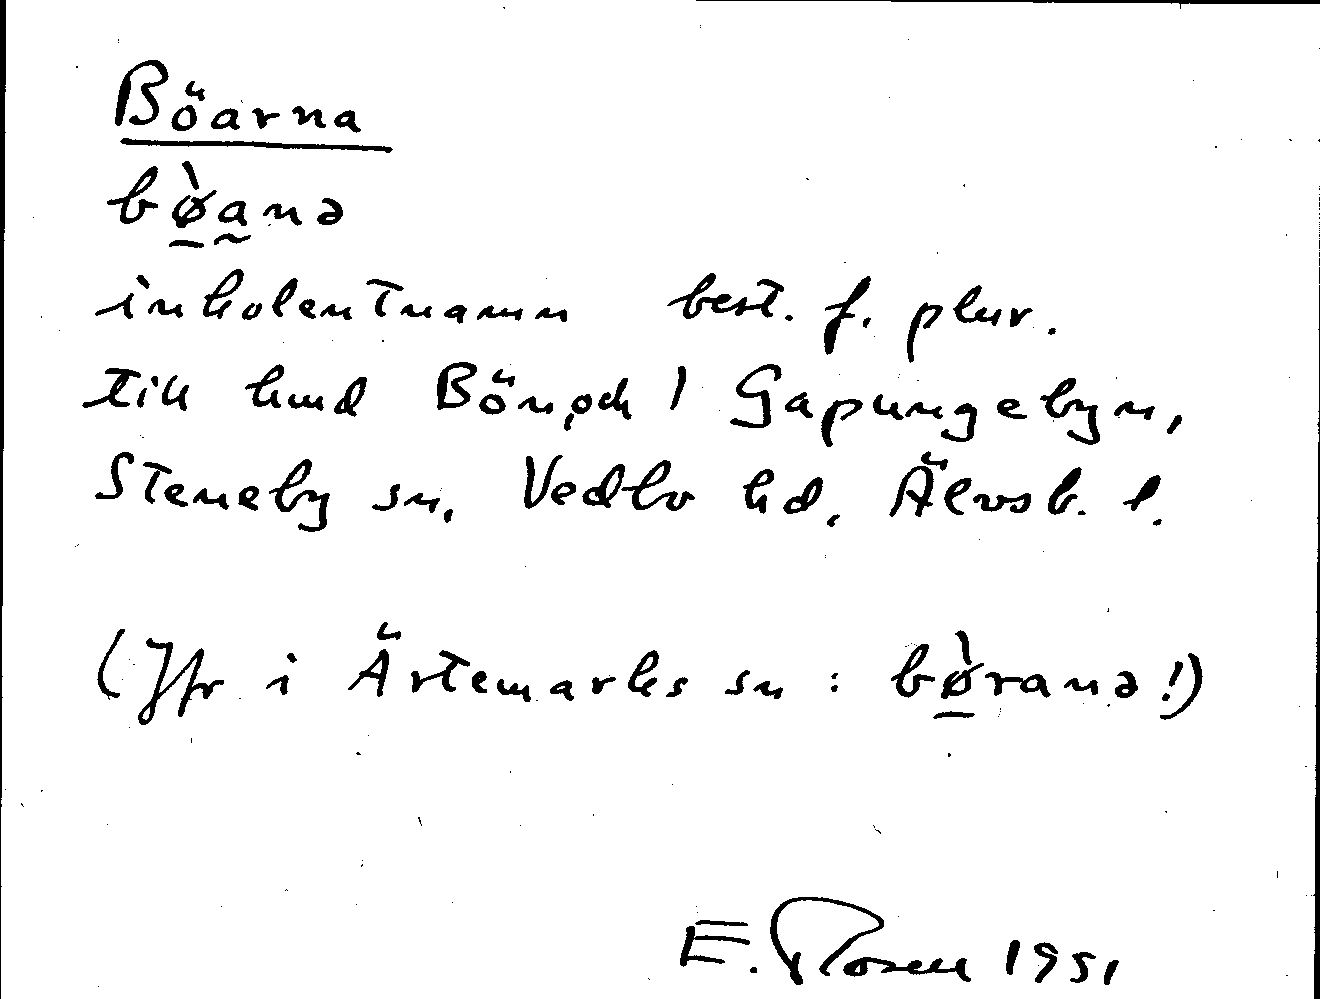 Böarna
bø̀anə
inbolentnamn best. f. plur.
till hmd Bön, och / Gapungebyn,
Steneby sn, Vedbo hd, Älvsb. l.
(Jfr i Ärtemarks sn : bø̀ranə!)
E. Rosell 1951